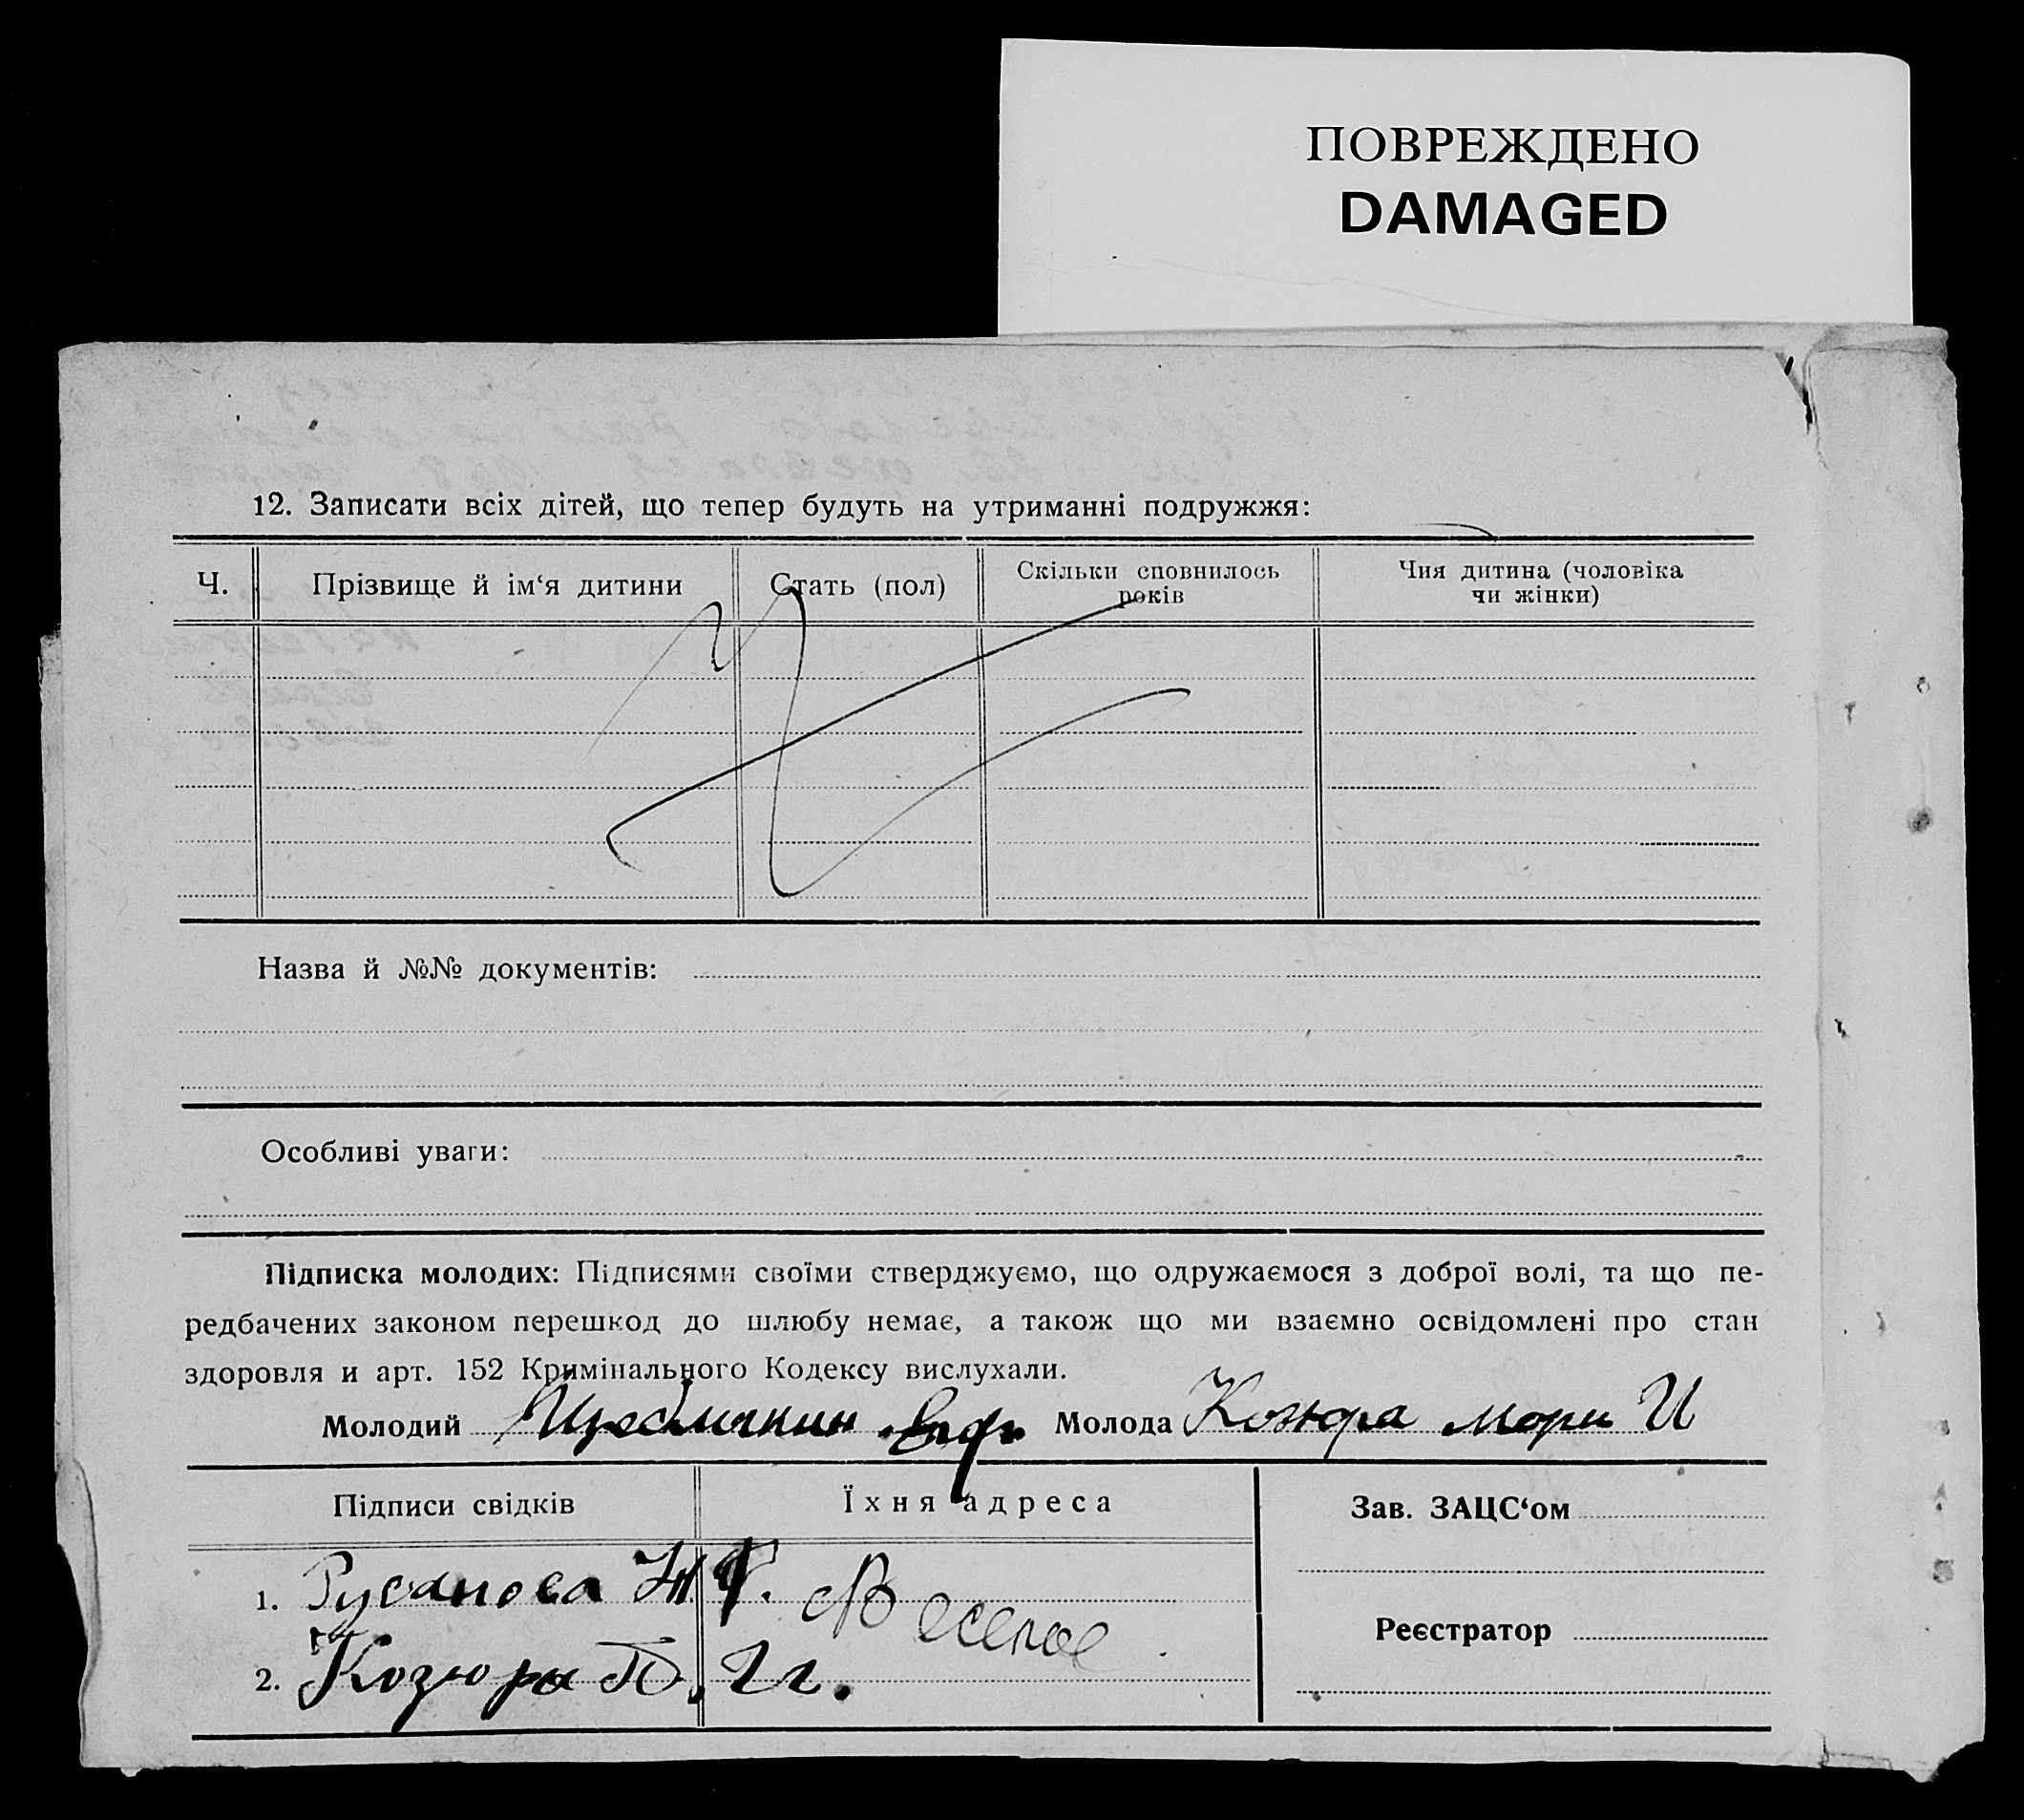 ПОВРЕЖДЕНО
DAMAGED
12. Записати всіх дітей, що тепер будуть на утриманні подружжя:
Ч.
Прізвище й ім‘я дитини
Стать (пол)
Скільки сповнилось
років
Чия дитина (чоловіка
чи жінки)
Назва й №№ документів:
Особливі уваги:
Підписка молодих: Підписями своїми стверджуємо, що одружаємося з доброї волі, та що пе-
редбачених законом перешкод до шлюбу немає, а також що ми взаємно освідомлені про стан
здоровля и арт. 152 Кримінального Кодексу вислухали.
Молодий Молода Козюра Мори И
Підписи свідків
Їхня адреса
Зав. ЗАЦС‘ом
1. Русанова с Веселое
Реєстратор
2. Козюра П. Гг.